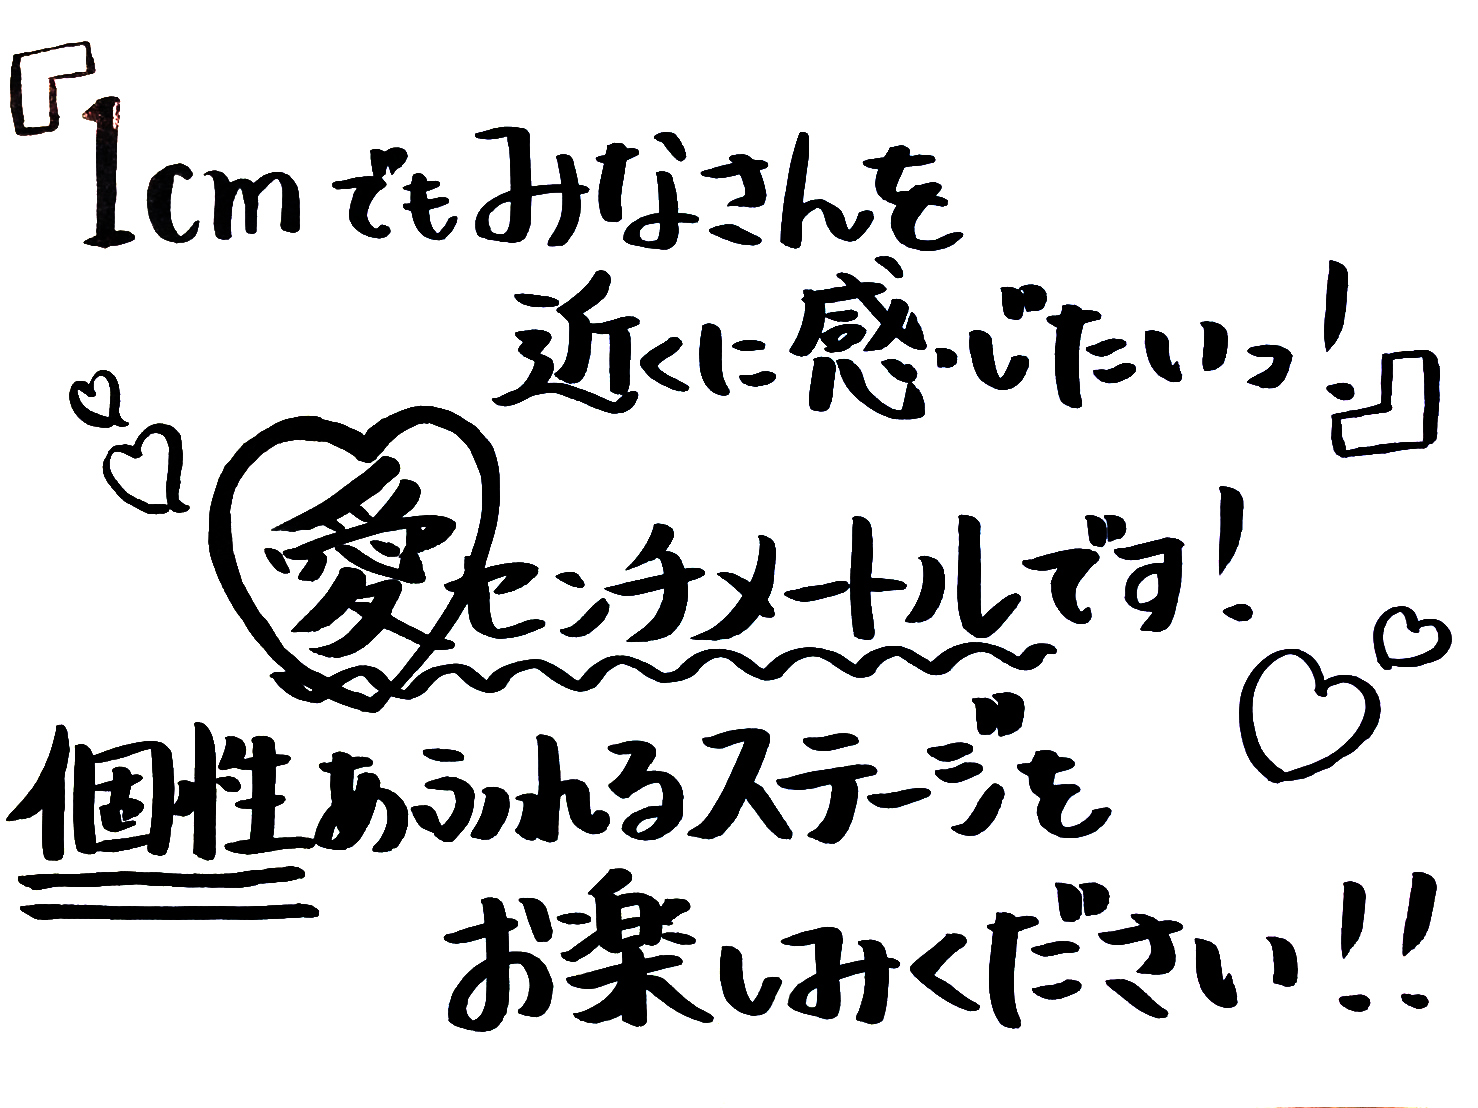 『1cmでもみなさんを
近くに感じたいっ!』
愛センチメートルです!
個性あふれるステージを
お楽しみください!!